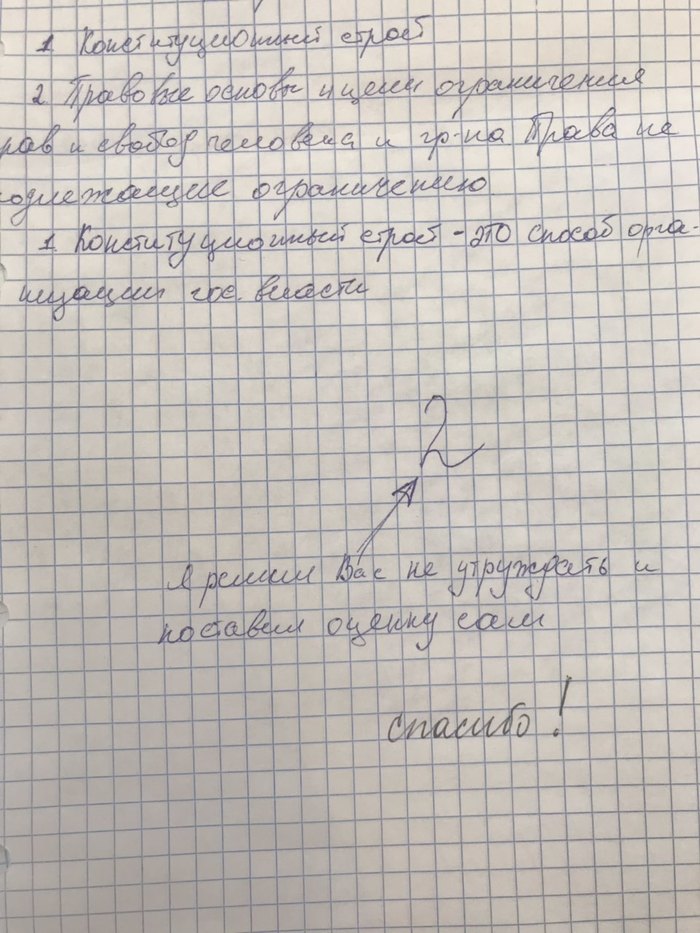 1. Конституционный строй
2. Правовые основы и цели ограничения
рав и свобод человека и гр-на Права не
одлежащие ограничению
1. Конституционный строй - это способ орга-
низации гос. власти
2
Я решил Вас не утруждать и
поставил оценку сам
спасибо!